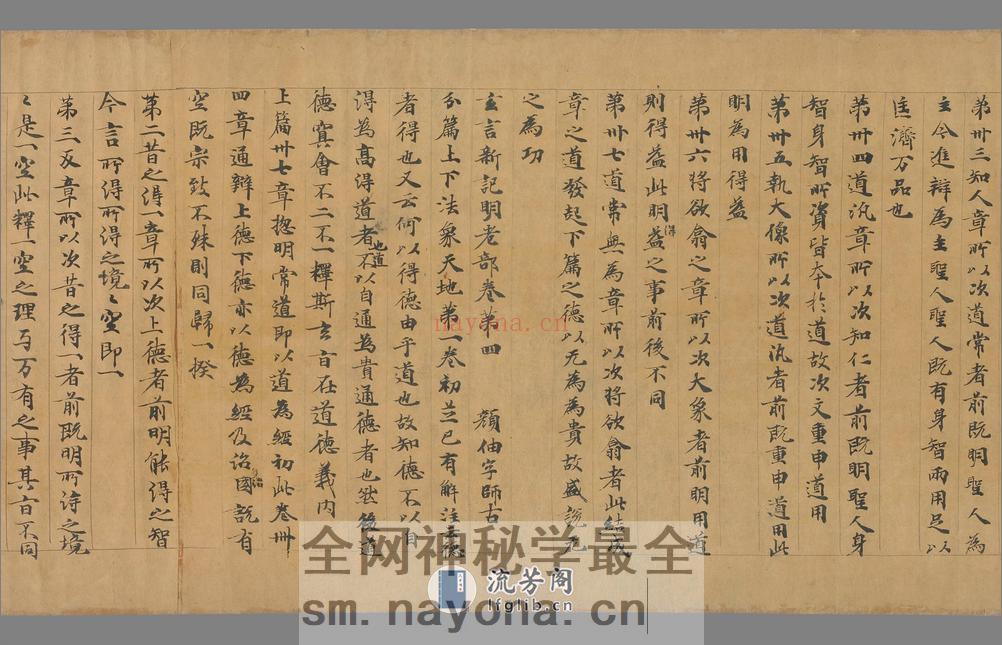 第卅三知人章所以次道常者前既明聖人為
主今進辯為主聖人聖人既有身智兩用足以
匡濟万品也
第卅四道汎章所以次知仁者前既明聖人身
智身智所資皆本於道故次文重申道用
第卅五執大像所以次道汎者前既重申道用此
明為用得益
第卅六将欲翕之章所以次大象者前明用道
則得益此明益之事前後不同
第卅七道常無為章所以次将欲翕者此結成
章之道發起下篇之德以无為為貴故盛説无
之為功
玄言新記明老部卷第四 顏伷字師古
分篇上下法象天地第一卷初並已有解注云德
者得也又云何以得德由乎道也故知德不以自
得為高得道者不以自通為貴通德者也然後道
也道
德冥會不二不一釋斯玄旨在道德義内
上篇卅七章揔明常道即以道為經初此卷卌
四章通辯上德下德亦以德為經及治國説有
空既宗致不殊則同歸一揆
第二昔之得一章所以次上德者前明能得之智
今言所得所得之境〻空即一
第三反章所以次昔之得一者前既明所詩之境
〻是一空此釋一空之理与万有之事其旨不同
nayona.cn
全网神秘学最全
流芳阁
lfglib.cn
sm.nayona.cn